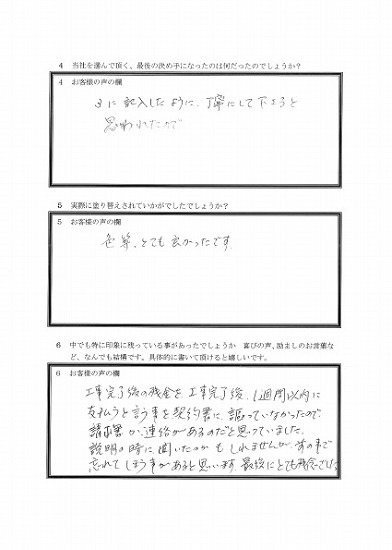 4 当社を選んで頂く、最後の決め手になったのは何だったのでしょうか？
4 お客様の声の欄
3に記入したように、丁寧にして下さると
思われたので
5 実際に塗り替えされていかがでしたでしょうか？
5 お客様の声の欄
色等、とても良かったです
6 中でも特に印象に残っている事があったでしょうか 喜びの声、励ましのお言葉な
ど、なんでも結構です。具体的に書いて頂けると嬉しいです。
6 お客様の声の欄
工事完了後の残金を、工事完了後、1週間以内に
支払うと言う事を契約書に、謳っていなかったので
請求書か連絡があるのだと思っていました。
説明の時に、聞いたのかもしれませんが、前の事で
忘れてしまう事があると思います。最後にとても残念でした。